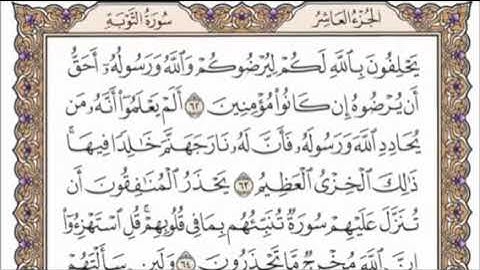 الجُزْءُ العَاشِرُ سُورَةُ التَّوْبَةِ
يَحْلِفُونَ بِٱللَّهِ لَكُمْ لِيُرْضُوكُمْ وَٱللَّهُ وَرَسُولُهُۥٓ أَحَقُّ
أَن يُرْضُوهُ إِن كَانُوا۟ مُؤْمِنِينَ ٦٢ أَلَمْ يَعْلَمُوٓا۟ أَنَّهُۥ مَن
يُحَادِدِ ٱللَّهَ وَرَسُولَهُۥ فَأَنَّ لَهُۥ نَارَ جَهَنَّمَ خَٰلِدًا فِيهَا ۚ
ذَٰلِكَ ٱلْخِزْىُ ٱلْعَظِيمُ ٦٣ يَحْذَرُ ٱلْمُنَٰفِقُونَ أَن
تُنَزَّلَ عَلَيْهِمْ سُورَةٌ تُنَبِّئُهُم بِمَا فِى قُلُوبِهِمْ ۚ قُلِ ٱسْتَهْزِءُوٓا۟
إِنَّ ٱللَّهَ مُخْرِجٌ مَّا تَحْذَرُونَ ٦٤ وَلَئِن سَأَلْتَهُمْ